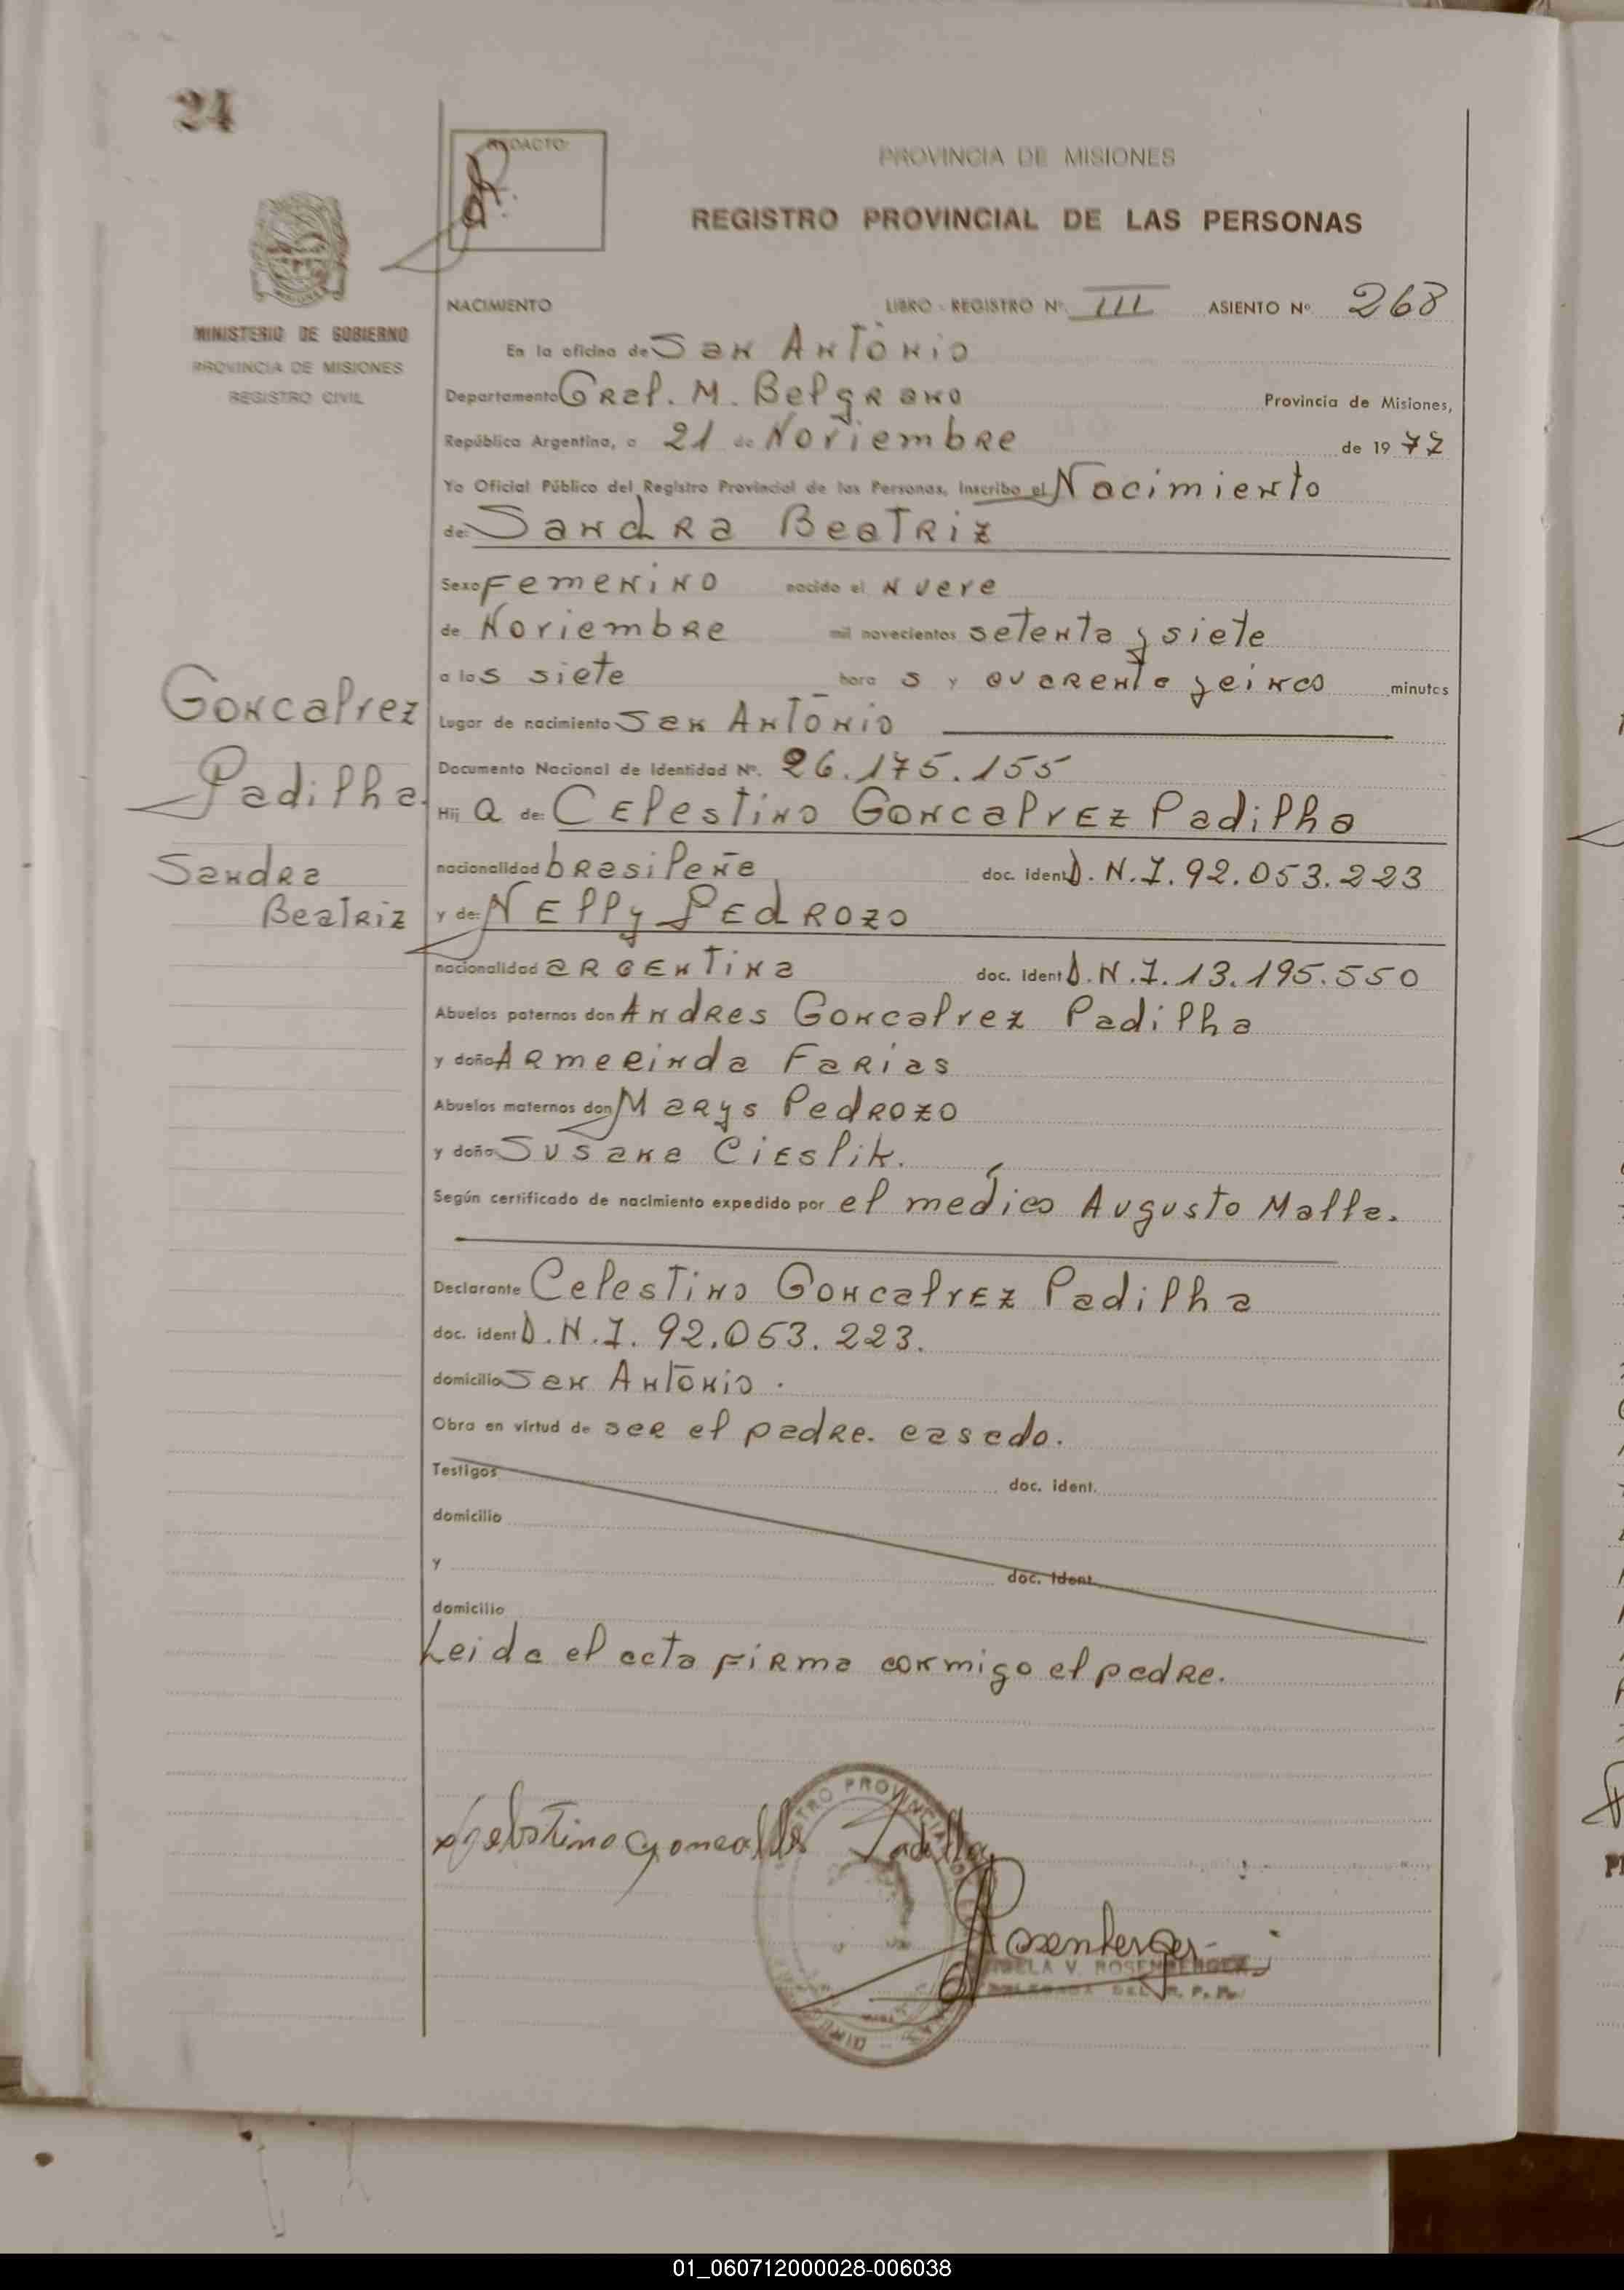 24
REDACTO:
PROVINCIA DE MISIONES
REGISTRO PROVINCIAL DE LAS PERSONAS
MINISTERIO DE GOBIERNO
PROVINCIA DE MISIONES
REGISTRO CIVIL
NACIMIENTO LIBRO - REGISTRO Nº III ASIENTO Nº 268
En la oficina de San Antonio
Departamento Gral. M. Belgrano Provincia de Misiones,
República Argentina, a 21 de Noviembre de 1977
Yo Oficial Público del Registro Provincial de las Personas, inscribo el Nacimiento
de: Sandra Beatriz
Sexo Femenino nacido el Nueve
de Noviembre mil novecientos setenta y siete
a las siete hora s y cuarenta y cinco minutos
Lugar de nacimiento San Antonio
Documento Nacional de Identidad Nº. 26.175.155
Hij a de: Celestino Goncalvez Padilha
nacionalidad brasileña doc. ident D.N.I. 92.053.223
y de: Nelly Pedrozo
nacionalidad argentina doc. ident D.N.I. 13.195.550
Abuelos paternos don Andres Goncalvez Padilha
y doña Armelinda Farias
Abuelos maternos don Marys Pedrozo
y doña Susana Cieslik.
Según certificado de nacimiento expedido por el médico Augusto Malla.
Declarante Celestino Goncalvez Padilha
doc. ident D.N.I. 92.053.223.
domicilio San Antonio.
Obra en virtud de ser el padre. casado.
Testigos doc. ident.
domicilio
y doc. ident.
domicilio
Leida el acta firma conmigo el padre.
Goncalvez
Padilha.
Sandra
Beatriz
Rosenberger
V. ROSENBERGER
DELEGADA DEL R. P. P.
01_060712000028-006038